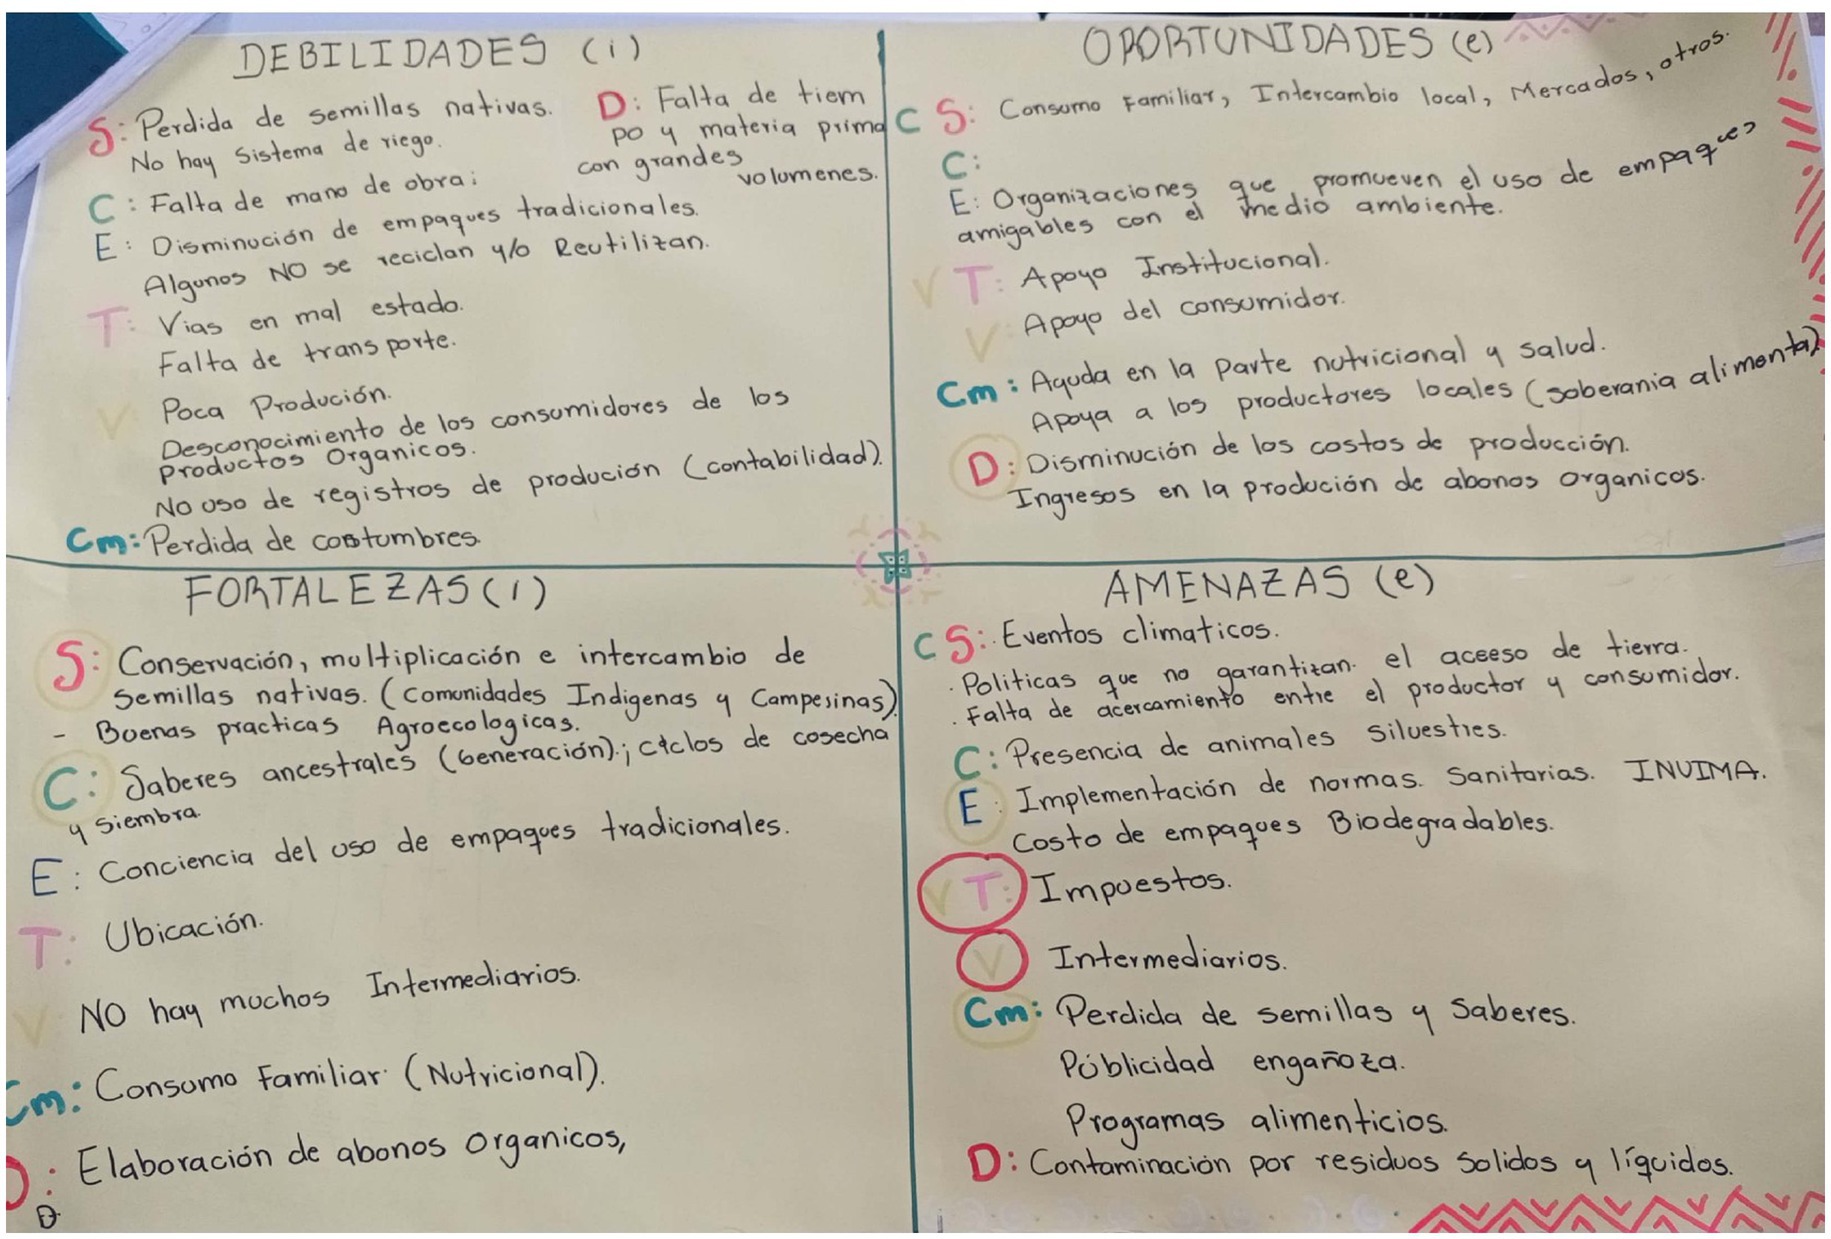 DEBILIDADES (i)
S: Perdida de semillas nativas.
No hay Sistema de riego.
D: Falta de tiem
po y materia prima
con grandes
volumenes.
C: Falta de mano de obra;
E: Disminución de empaques tradicionales.
Algunos NO se reciclan y/o Reutilizan.
T: Vias en mal estado.
Falta de transporte.
V Poca Produción.
Desconocimiento de los consumidores de los
productos Organicos.
No uso de registros de produción (contabilidad).
Cm: Perdida de costumbres.
OPORTUNIDADES (e)
C S: Consumo Familiar, Intercambio local, Mercados, otros.
C:
E: Organizaciones que promueven el uso de empaques
amigables con el medio ambiente.
V T: Apoyo Institucional.
V: Apoyo del consumidor.
Cm: Ayuda en la parte nutricional y salud.
Apoya a los productores locales (soberania alimentaria)
D: Disminución de los costos de producción.
Ingresos en la produción de abonos organicos.
FORTALEZAS (I)
S: Conservación, multiplicación e intercambio de
Semillas nativas. (Comunidades Indigenas y Campesinas).
- Buenas practicas Agroecologicas.
C: Saberes ancestrales (Generación).; ciclos de cosecha
y siembra.
E: Conciencia del uso de empaques tradicionales.
T: Ubicación.
V NO hay muchos Intermediarios.
Cm: Consumo Familiar (Nutricional).
D: Elaboración de abonos organicos,
AMENAZAS (e)
C S: Eventos climaticos.
. Politicas que no garantizan. el aceeso de tierra.
. Falta de acercamiento entre el productor y consumidor.
C: Presencia de animales silvestres.
E: Implementación de normas. Sanitarias. INVIMA.
Costo de empaques Biodegradables.
V T: Impuestos.
V Intermediarios.
Cm: Perdida de semillas y Saberes.
Públicidad engañoza.
Programas alimenticios.
D: Contaminación por residuos solidos y líquidos.